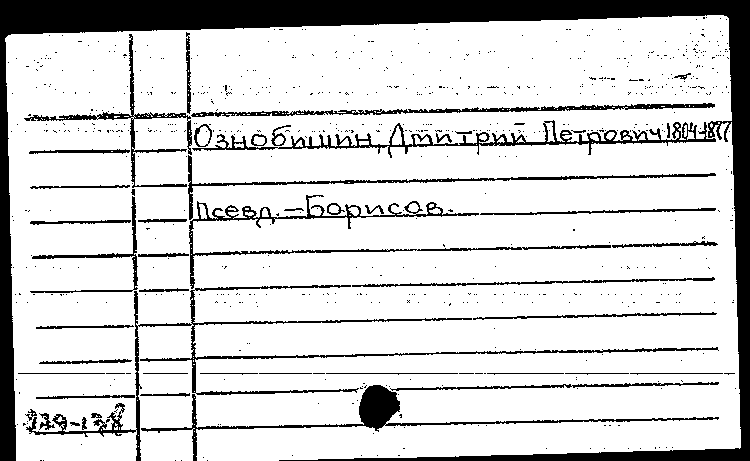 Ознобишин, Дмитрий Петрович, 1804-1877
Псевд. – Борисов.